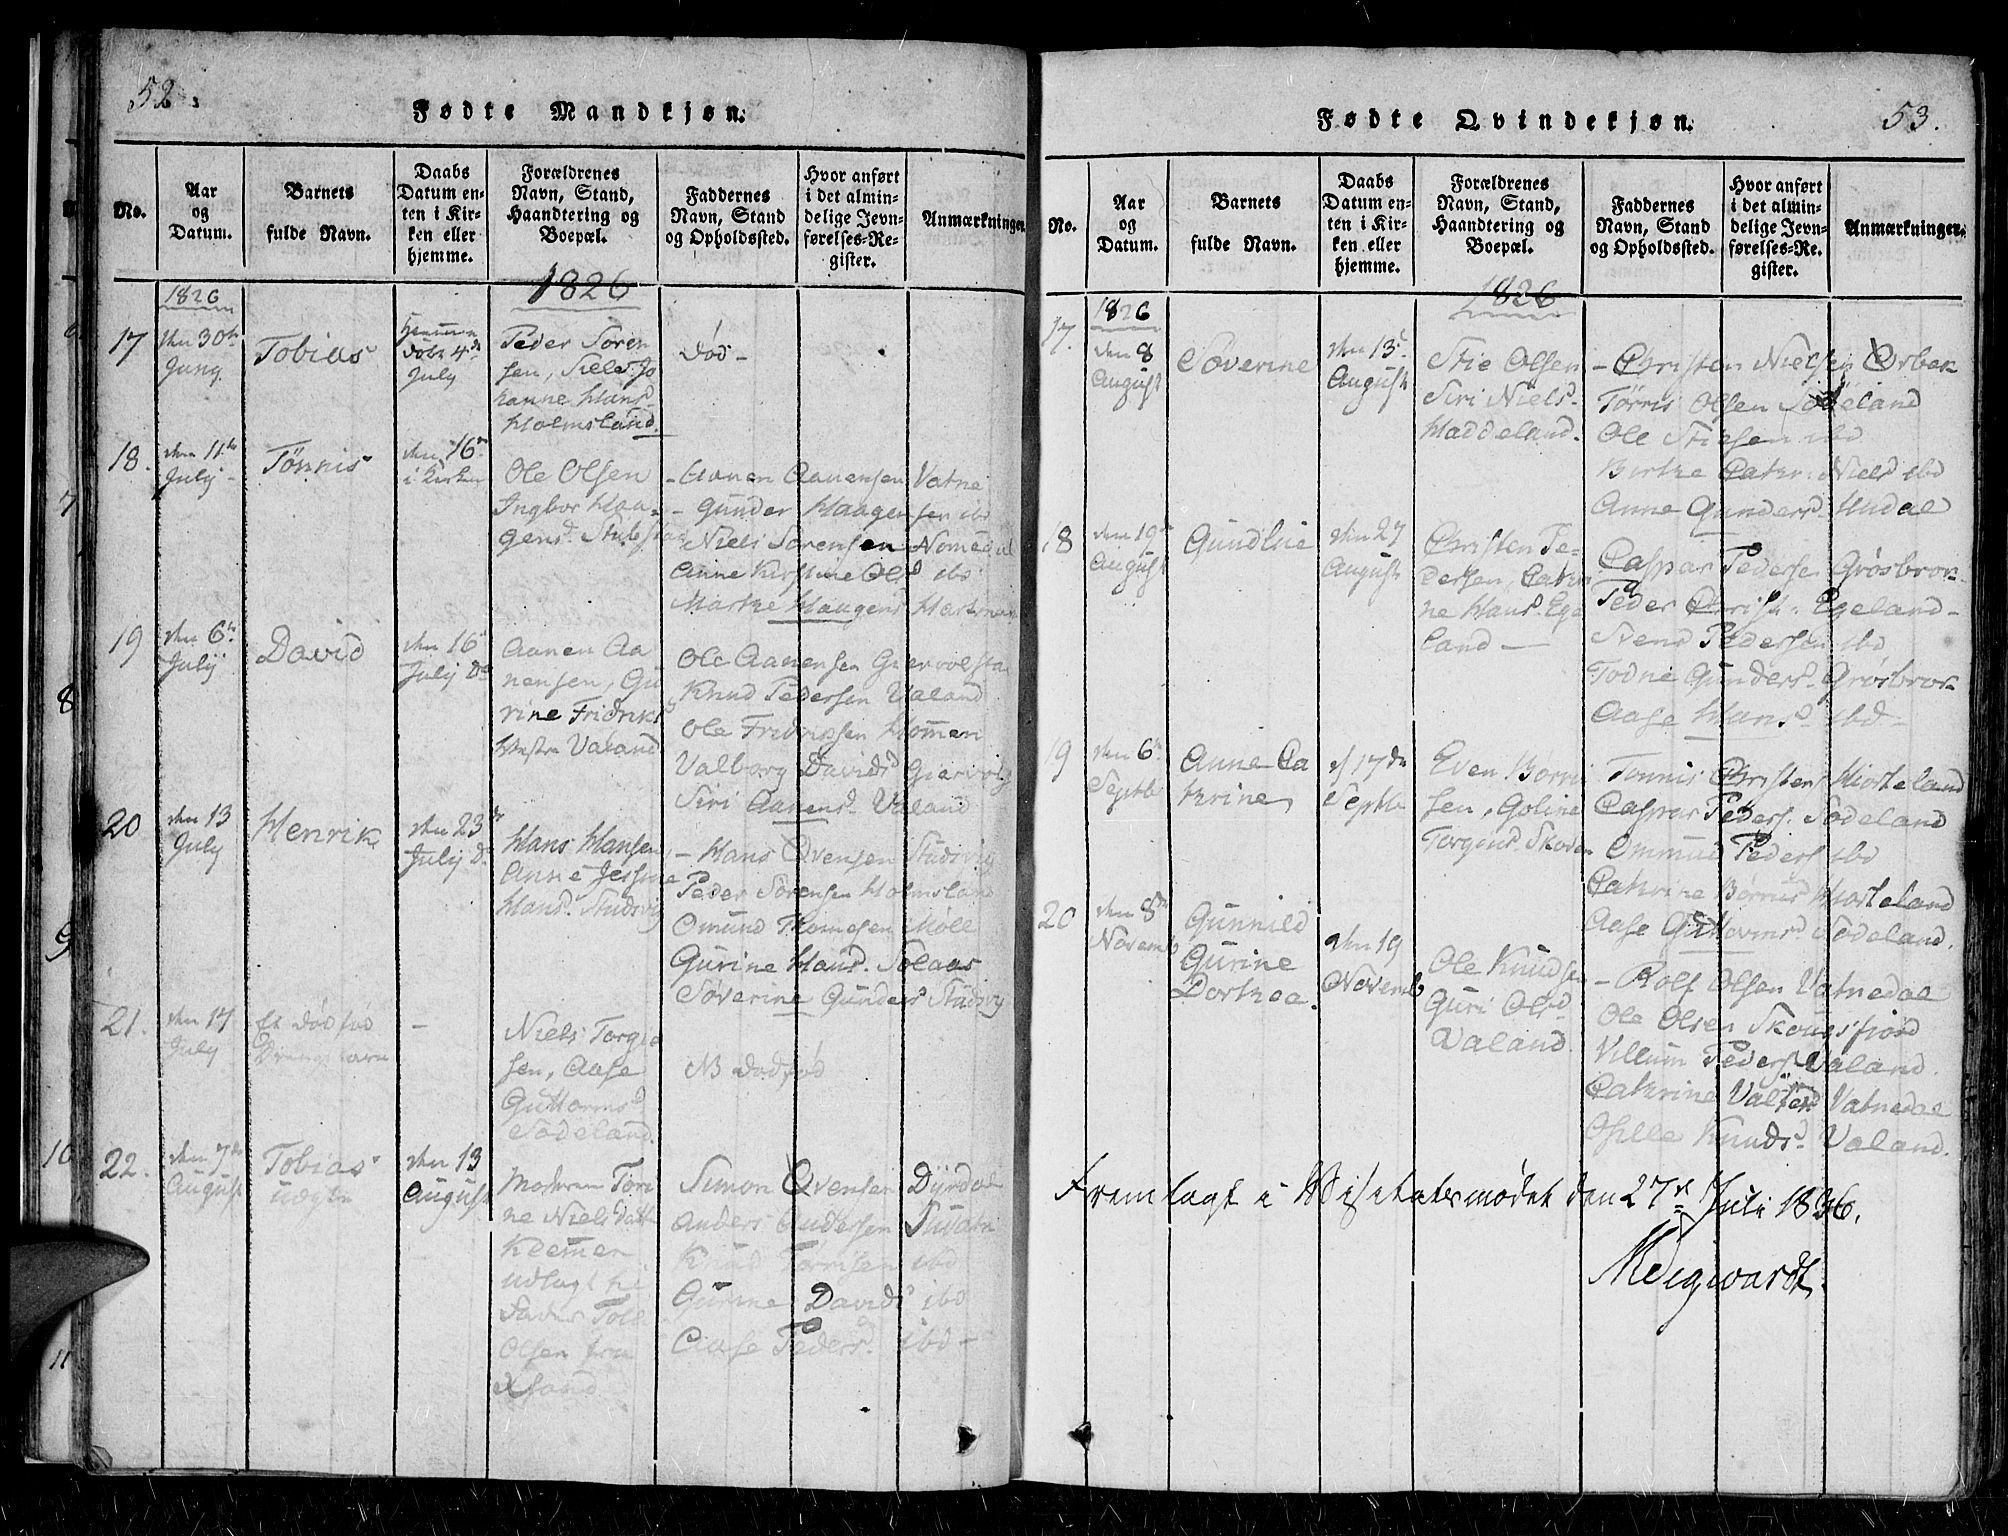 52.
Fødte Mandkjøn.
No.
Aar
og
Datum.
Barnets
fulde Navn.
Daabs
Datum en-
ten i Kir-
ken eller
hjemme.
Forældrenes
Navn, Stand,
Haandtering og
Boepæl.
Faddernes
Navn, Stand
og Opholdssted.
Hvor anført
i det almin-
delige Jevn-
førelses-Re-
gister.
Anmærkninger.
1826
1826
17
den 30te
Juny.
Tobias
Hjemme
døbt 4de
July
Peder Sören
sen,
hanne Hans
Holmsland.
död-
18.
den 11te
July
Tönnis
den 16
i Kirken
Ole Olsen
Ingbor Haa-
gensd.
Aanen Aanensen Vatne
Gunder Haagensen ibd
Niels Sorensen Nomedal
Anne Kirstine Olsd ibd
Marthe Haagens
19
den 6te
July
David
den 16
July do
Aanen Aa
nensen, Gu
rine Fridriks
Valand
Ole Aanensen
Knud Pedersen Valand
Ole Fridriksen Hommen
Valborg Davids
Siri Aanensd Valand
20
den 13
July
Henrik
den 23
July d.
Hans Hansen
Anne
Hansd. Studsvig
- Hans Ovensen Studsvig
Peder Sörensen Holmsland
Omund Thomesen Möll
Gurine Hansd. Solaas
Söverine Gunders Studsvig
21.
den 17
July
Et dödföd
Drengebarn
-
Niels Torgie
sen, Aase
Guttormsd
Södeland.
NB dödföd
22.
den 7de
August
Tobias
uægte
den 13
August
Moderen Tori
ne Nielsdatt
udlagt
Olsen fra
Simon Ovensen Dyrdal
Anders Andersen
Knud Torrisen ibd
Gurine Davids ibd
Aase Peders. ibd-
Fødte Qvindekjøn.
53.
No.
Aar
og
Datum.
Barnets
fulde Navn.
Daabs
Datum en-
ten i Kir-
ken eller
hjemme.
Forældrenes
Navn, Stand,
Haandtering og
Boepæl.
Faddernes
Navn, Stand
og Opholdssted.
Hvor anført
i det almin-
delige Jevn-
førelses-Re-
gister.
Anmærkninger.
1826
1826
17.
den 8
August
Söverine
den 13
August
Stie Olsen
Siri Niels-
Haddeland.
- Christen Nielsen
Törris Olsen Södeland
Ole Stiesen ibd
Cathr. Niels ibd
Anne Gundersd.
18
den 19
August
Gundlie
den 27
August
Christen Pe-
dersen, Cathri
ne Hans. Ege
land
Caspar Pedersen Grösbror
Peder Christ. Egeland-
Svend Pedersen ibd
Todne Gunders. Grösbror
Aase Hansd ibd-
19
den 6
Septbr
Anne Ca
thrine
d 17de
Septbr
Even Borri
sen, Goline
Torgius
Tonnis Christens Hiorteland
Caspar Peders. Södeland
Ommund Peders ibd
Cathrine Hiorteland
Aase Guttormsd. Södeland.
20
den 8
Novemb
Gunnild
Gurine
Dorthea.
den 19
Novemb
Ole Knudsen
Guri Ols
Valand.
- Rolf Olsen Vatnedal
Ole Olsen
Villum Peders. Valand.
Cathrine Vatnedal
Osille Knudsd Valand.
Fremlagt i Visitatsmødet den 27de Juli 1836.